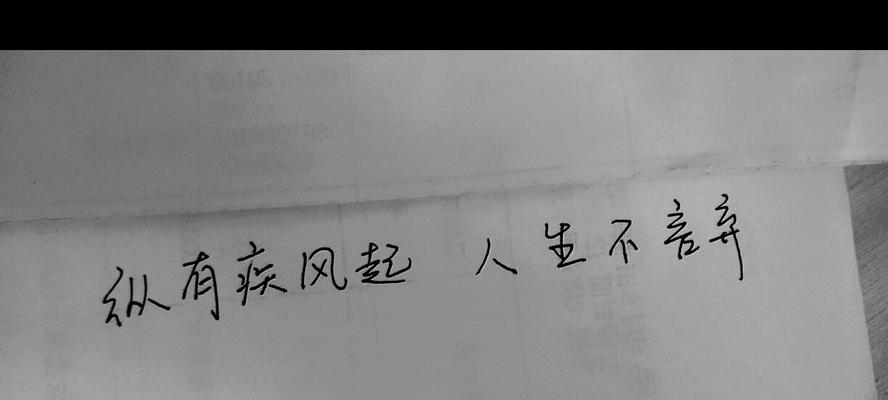 纵有疾风起 人生不言弃